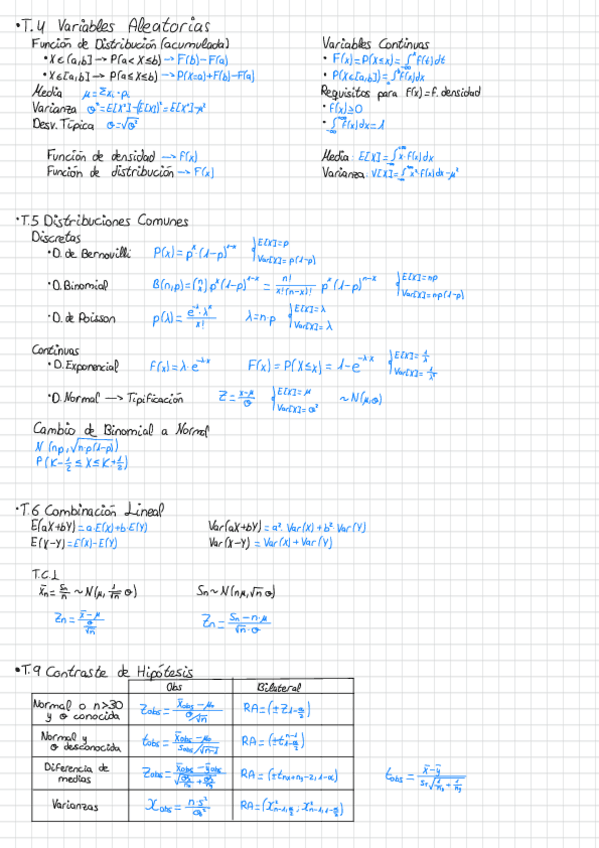 •T.4 Variables Aleatorias
Función de Distribución (acumulada)
• X∈(a,b] → P(a<X≤b) → F(b)-F(a)
• X∈[a,b] → P(a≤X≤b) → P(X=a)+F(b)-F(a)
Media μ=Σxᵢ·pᵢ
Varianza σ²=E[X²]-(E[X])²=E[X²]-μ²
Desv. Típica σ=√σ²
Función de densidad → f(x)
Función de distribución → F(x)
Variables Continuas
• F(x)=P(X≤x)=∫f(t)dt
• P(X∈[a,b])=∫f(x)dx
Requisitos para f(x)=f. densidad
• f(x)≥0
• ∫f(x)dx=1
Media: E[X]=∫x·f(x)dx
Varianza: V[X]=∫x²·f(x)dx-μ²
•T.5 Distribuciones Comunes
Discretas
•D. de Bernovilli P(x)=pˣ·(1-p)¹⁻ˣ {E[X]=p
Var[X]=p(1-p)
•D. Binomial B(n,p)=(n x)pˣ(1-p)¹⁻ˣ = n!/x!(n-x)! pˣ(1-p)ⁿ⁻ˣ {E[X]=np
Var[X]=np(1-p)
•D. de Poisson p(λ)=e^-λ·λˣ/x! λ=n·p {E[X]=λ
Var[X]=λ
Continuas
•D. Exponencial f(x)=λ·e^-λx F(x)=P(X≤x)=1-e^-λx {E[X]=1/λ
Var[X]=1/λ²
•D. Normal → Tipificación Z=x-μ/σ {E[X]=μ
Var[X]=σ² ~N(μ,σ)
Cambio de Binomial a Normal
N(np,√n·p(1-p))
P(K-1/2≤X≤K+1/2)
•T.6 Combinación Lineal
E(aX+bY)=a·E(X)+b·E(Y) Var(aX+bY)=a²·Var(X)+b²·Var(Y)
E(X-Y)=E(X)-E(Y) Var(X-Y)=Var(X)+Var(Y)
T.C.L
x̄n=Sn/n~N(μ,1/√n σ) Sn~N(nμ,√n σ)
Zn=x̄-μ/(σ/√n) Zn=Sn-n·μ/√n·σ
•T.9 Contraste de Hipótesis
Obs Bilateral
Normal o n>30
y σ conocida Zobs=x̄obs-μ₀/(σ/√n) RA=(±Z1-α/2)
Normal y
σ desconocida tobs=x̄obs-μ₀/(sobs/√n-1) RA=(±t n-1 1-α/2)
Diferencia de
medias Zobs=x̄obs-ȳobs RA=(±t
tobs=x̄-ȳ
Varianzas Xobs=n·s²/σ₀² RA=(X²n-1,α/2; X²n-1,1-α/2)